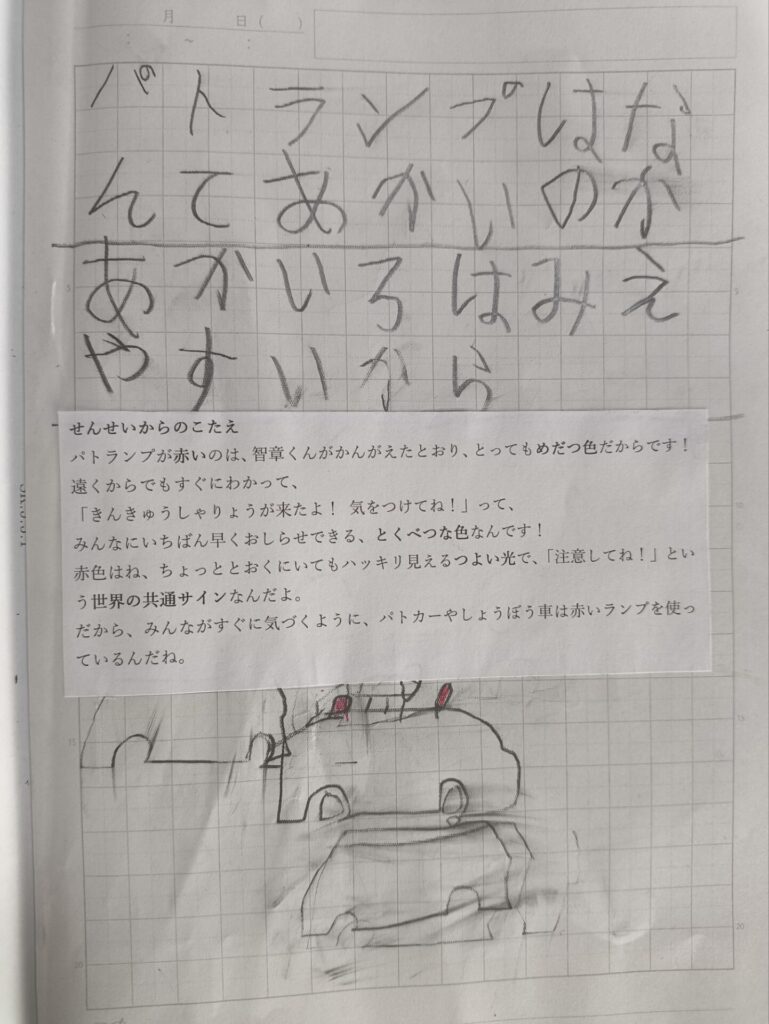 月 日( )
: ~ :
パトランプはな
んてあかいのか
あかいろはみえ
やすいから
せんせいからのこたえ
パトランプが赤いのは、智章くんがかんがえたとおり、とってもめだつ色だからです!
遠くからでもすぐにわかって、
「きんきゅうしゃりょうが来たよ! 気をつけてね!」って、
みんなにいちばん早くおしらせできる、とくべつな色なんです!
赤色はね、ちょっととおくにいてもハッキリ見えるつよい光で、「注意してね!」とい
う世界の共通サインなんだよ。
だから、みんながすぐに気づくように、パトカーやしょうぼう車は赤いランプを使っ
ているんだね。
5
5
15
15
20
20